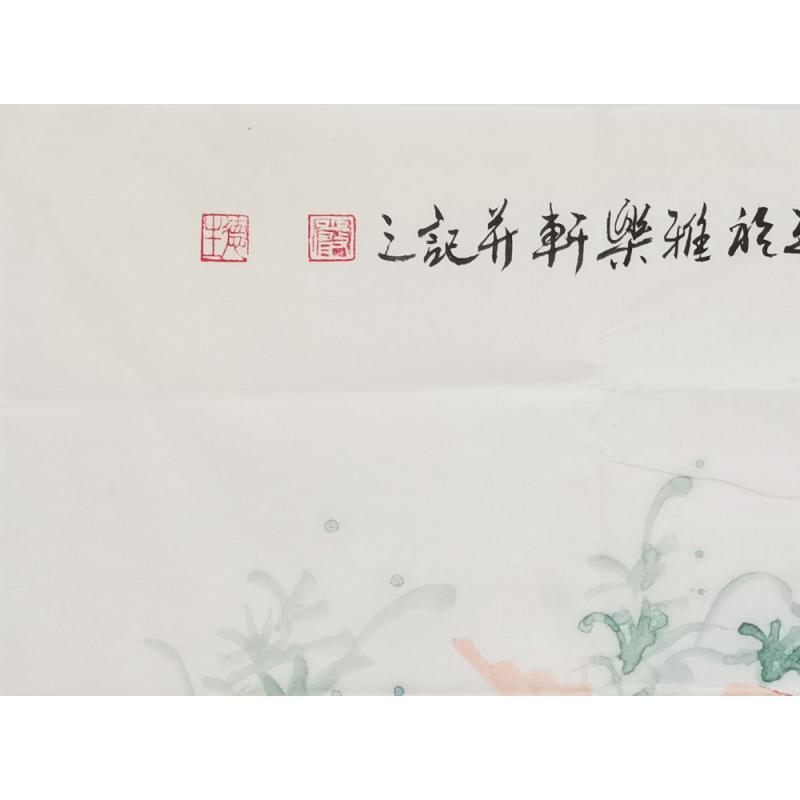 於雅樂軒并記之